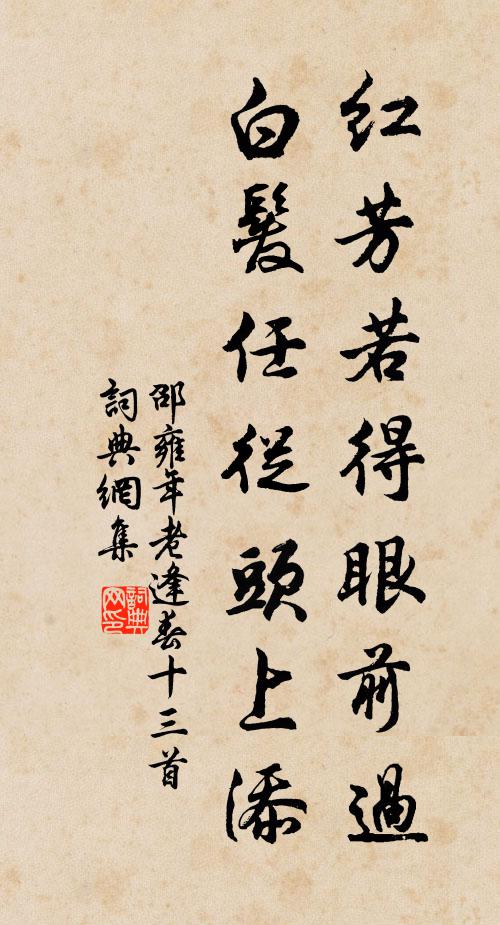 紅芳若得眼前過
白髮任從頭上添
邵雍年老逢春十三首
詞典網集
詞典
网印